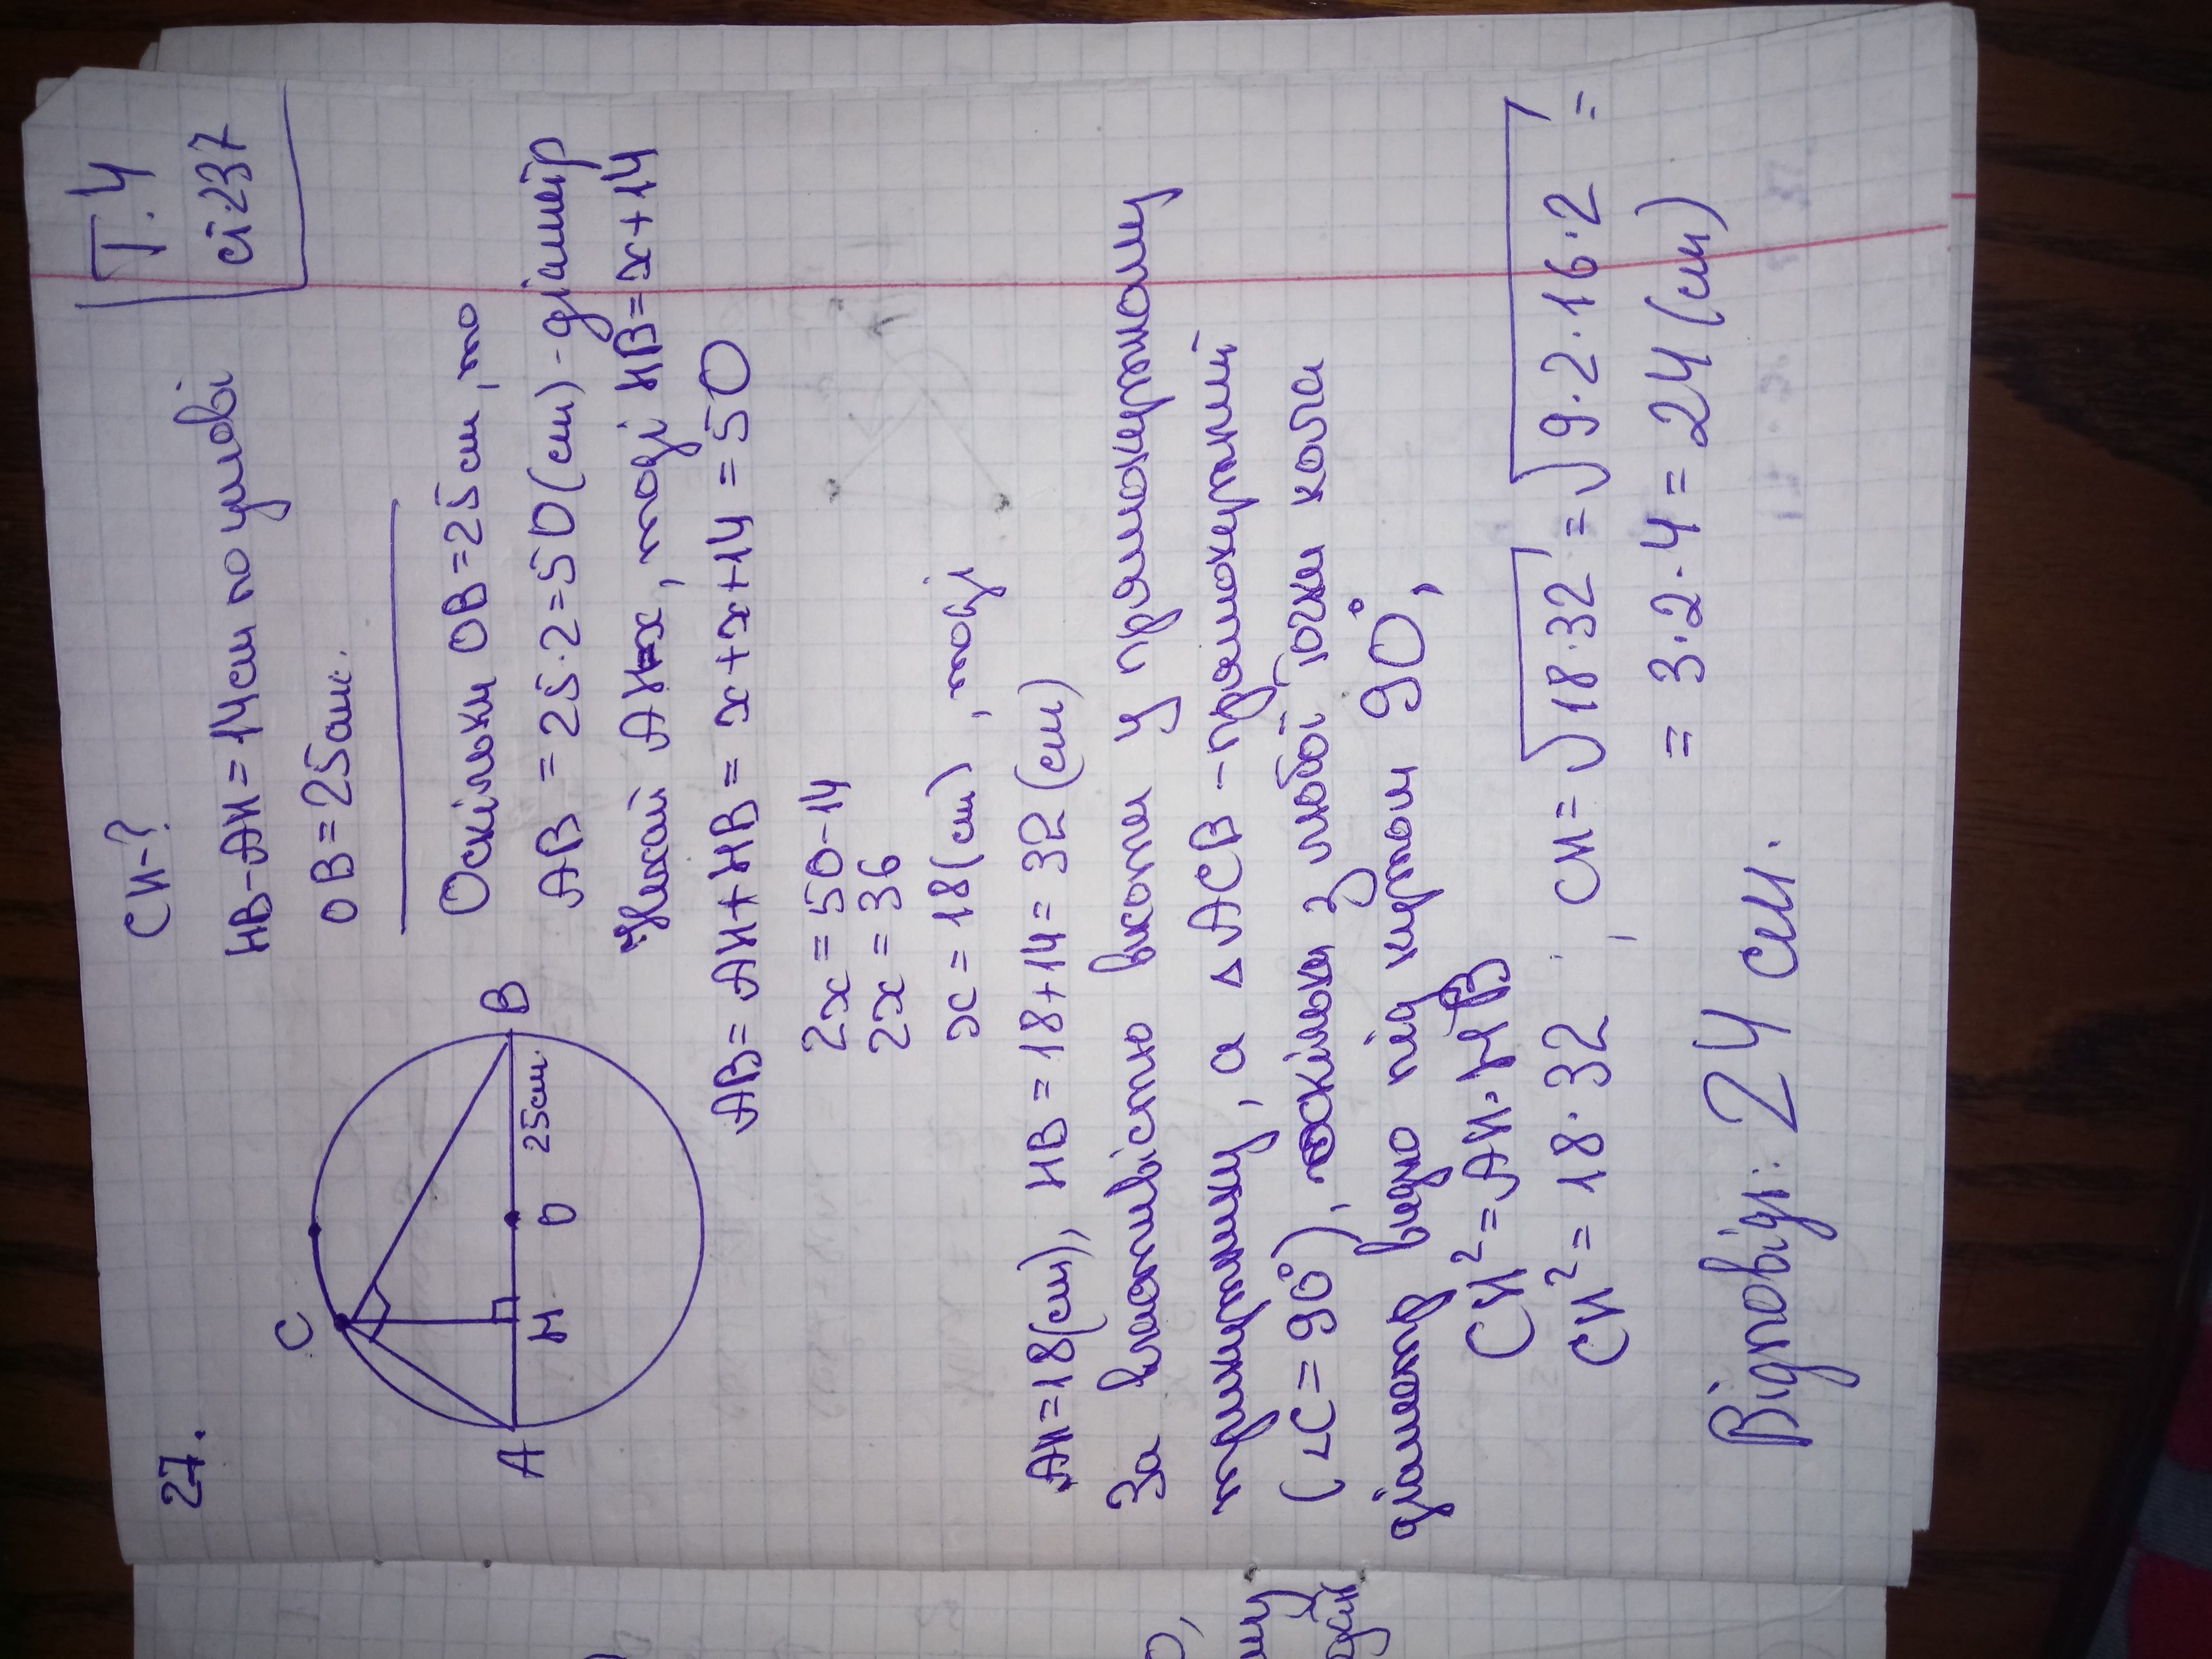 27.
Т.4
ст.237
C
A
H
O
25см
B
CH-?
HB-AH=14см по умові
OB=25см.
Оскільки OB=25см, то
AB=25·2=50(см)-діаметр
Нехай AH=x, тоді HB=x+14
AB=AH+HB=x+x+14=50
2x=50-14
2x=36
x=18(см), тоді
AH=18(см), HB=18+14=32(см)
За властивістю висоти у прямокутному
трикутнику, а △ACB-прямокутний
(∠C=90°), оскільки з любої точки кола
діаметр видно під кутом 90°,
CH²=AH·HB
CH²=18·32, CH=√18·32=√9·2·16·2=
=3·2·4=24(см)
Відповідь: 24 см.